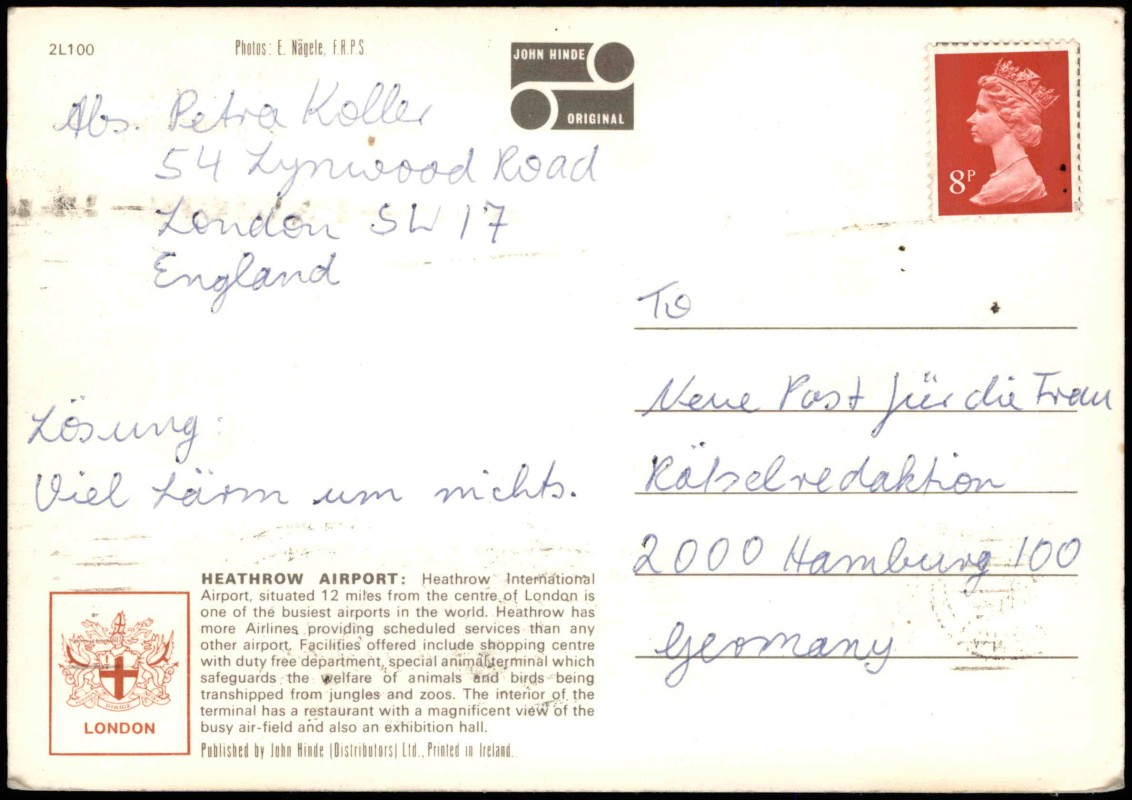 2L100
Photos: E. Nägele, F.R.P.S.
JOHN HINDE
ORIGINAL
8P
Abs. Petra Koller
54 Lynwood Road
London SW 17
England
Lösung:
Viel Lärm um nichts.
To
Neue Post für die Frau
Rätselredaktion
2000 Hamburg 100
Germany
HEATHROW AIRPORT: Heathrow International
Airport, situated 12 miles from the centre of London is
one of the busiest airports in the world. Heathrow has
more Airlines providing scheduled services than any
other airport. Facilities offered include shopping centre
with duty free department, special animal terminal which
safeguards the welfare of animals and birds being
transhipped from jungles and zoos. The interior of the
terminal has a restaurant with a magnificent view of the
busy air-field and also an exhibition hall.
Published by John Hinde (Distributors) Ltd., Printed in Ireland.
LONDON